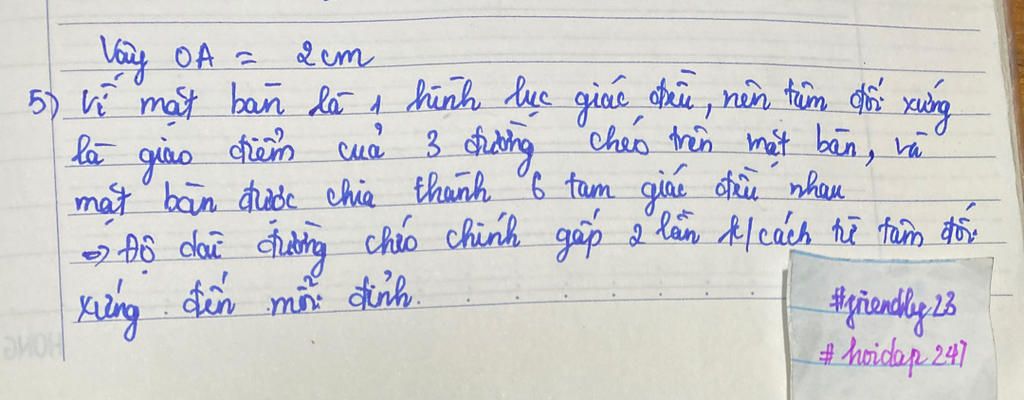 Vậy OA = 2cm
5) Vì mặt bàn là 1 hình lục giác đều, nên tâm đối xứng
là giao điểm của 3 đường chéo trên mặt bàn, và
mặt bàn được chia thành 6 tam giác đều nhau
=> Độ dài đường chéo chính gấp 2 lần k/cách từ tâm đối
xứng đến mỗi đỉnh.
#friendly23
#hoidap247